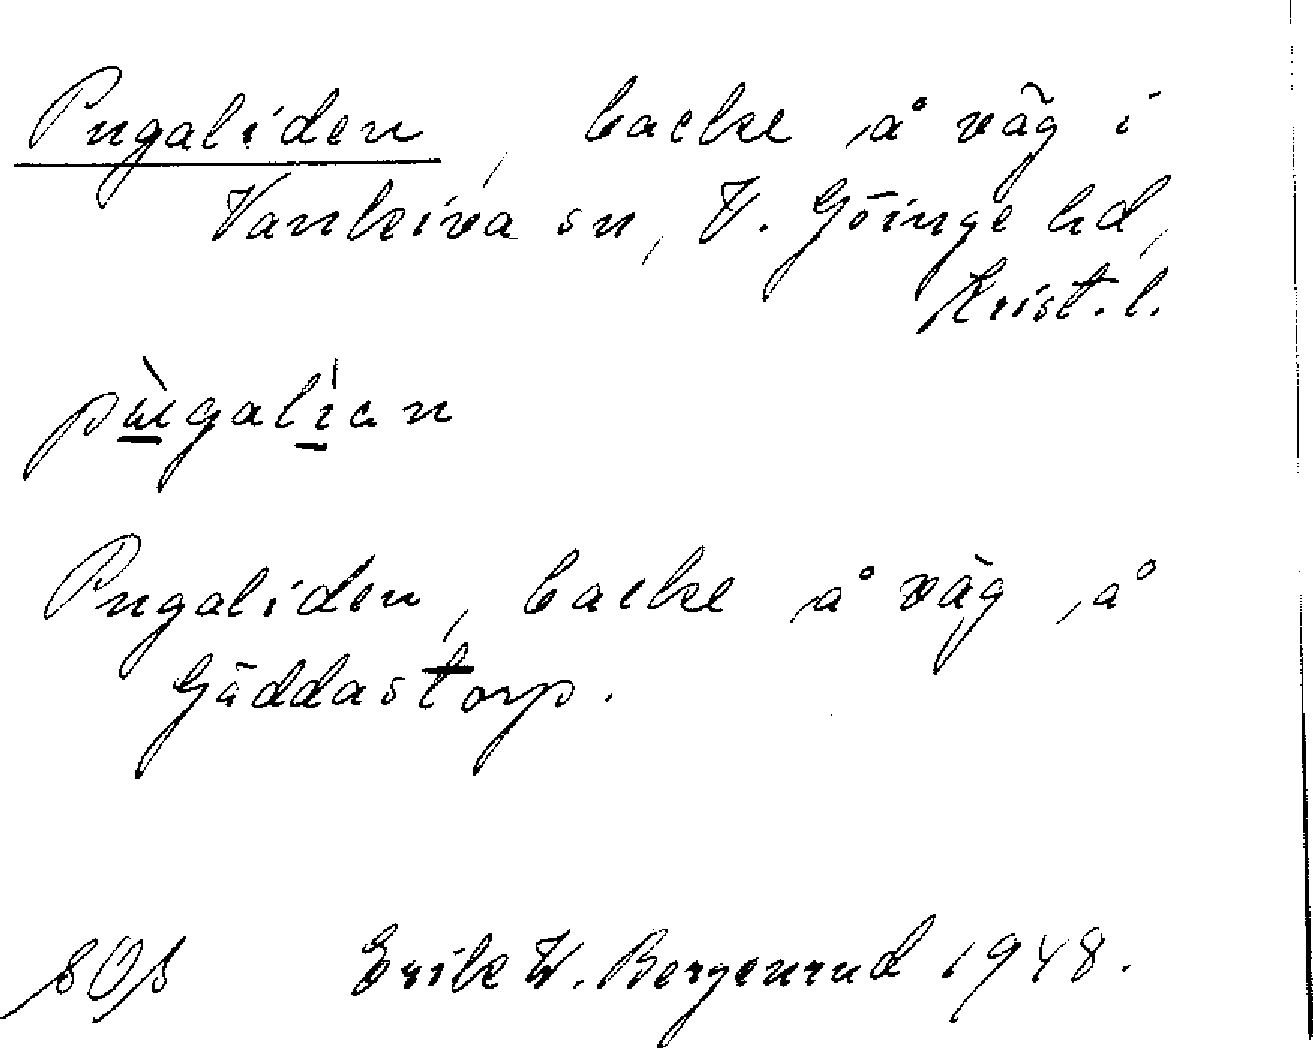 Pugaliden, backe å väg i
Vankiva sn, V. Göinge hd,
Krist. l.
pùgalían
Pugaliden, backe å väg å
Gäddastorp.
Erik W. Bergenrud 1948.